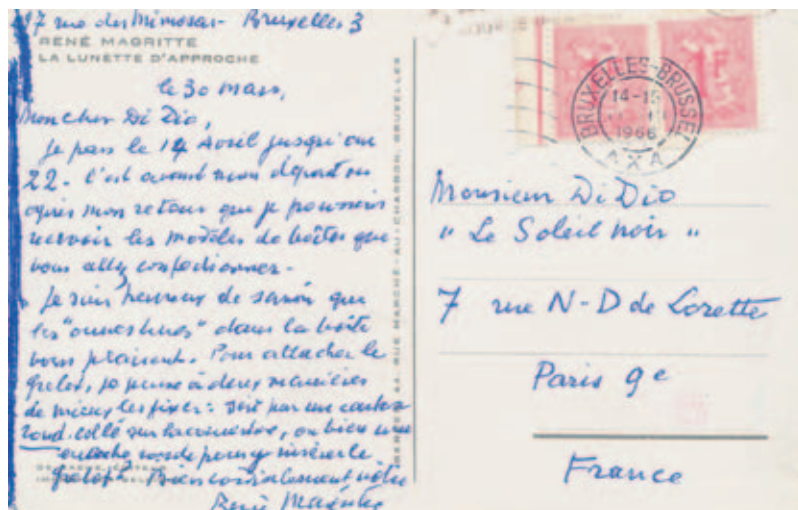 97 rue des Mimosas - Bruxelles 3
RENÉ MAGRITTE
LA LUNETTE D'APPROCHE
le 30 mars,
Mon cher Di Dio,
Je pars le 14 Avril jusqu'au
22. C'est avant mon départ ou
après mon retour que je pourrais
recevoir les modèles de boîtes que
vous allez confectionner.
Je suis heureux de savoir que
les "ouvertures" dans la boîte
vous plaisent. Pour attacher le
grelot, je pense à deux manières
de mieux les fixer : soit par un
rond collé sur la ou bien une
ronde pour y insérer le
grelot. Bien cordialement vôtre
René Magritte
44, RUE MARCHÉ-AU-CHARBON, BRUXELLES
BRUXELLES-BRUSSEL
14-15
1966
AXA
1F
Monsieur Di Dio
" Le Soleil noir "
7 rue N-D de Lorette
Paris 9e
France